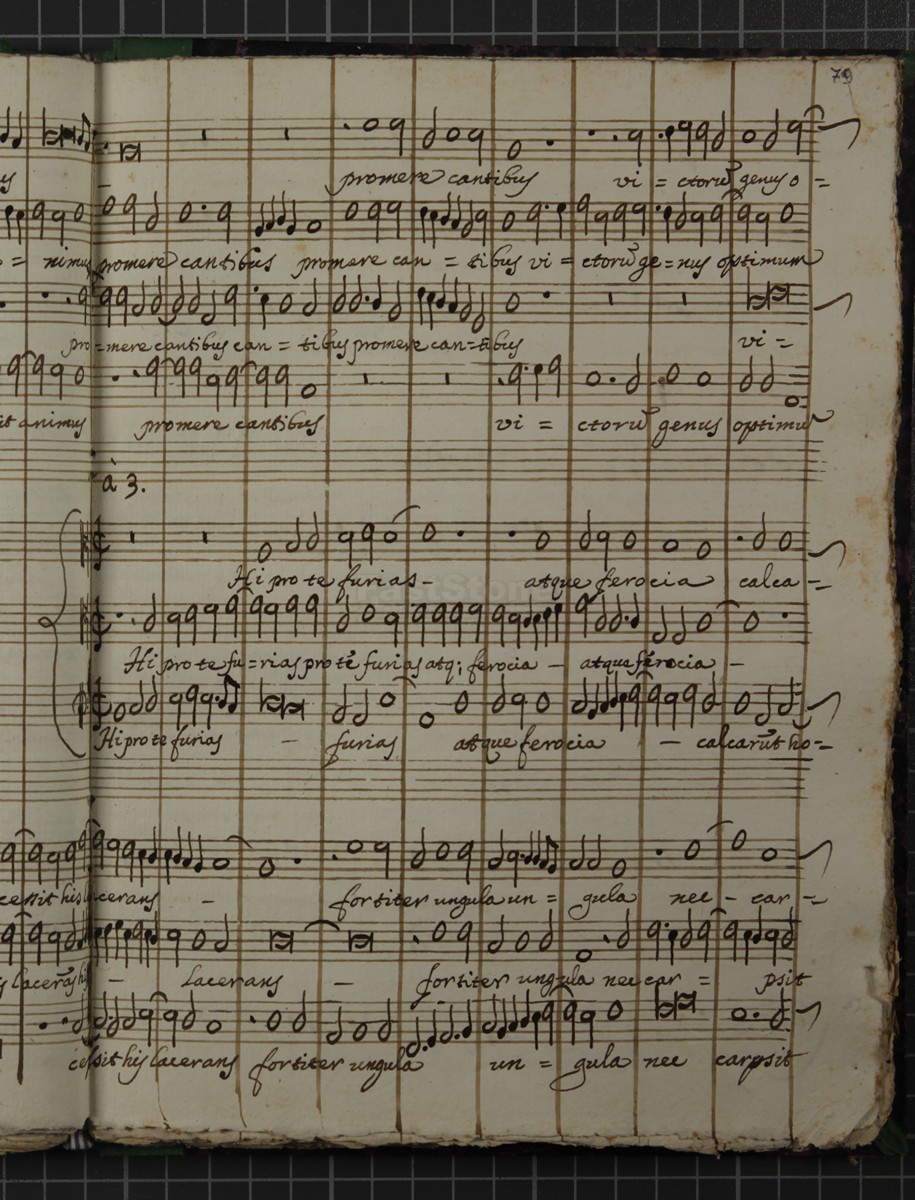 79
promere cantibus vi = ctorũ genus o =
= nimus promere cantibus promere can = tibus vi = ctorũ ge = nus optimum
pro = mere cantibus can = tibus promere can = tibus vi =
it animus promere cantibus vi = ctorũ genus optimũ
à 3.
Hi pro te furias - atque ferocia calca =
Hi pro te fu = rias pro te furias atq; ferocia - atque ferocia -
Hi pro te furias - furias atque ferocia - calcarũt ho =
cessit his lacerans - fortiter ungula un = gula nec - car =
lacerãs hi - lacerans - fortiter ungula nec car = psit
cessit his lacerans fortiter ungula un = gula nec carpsit